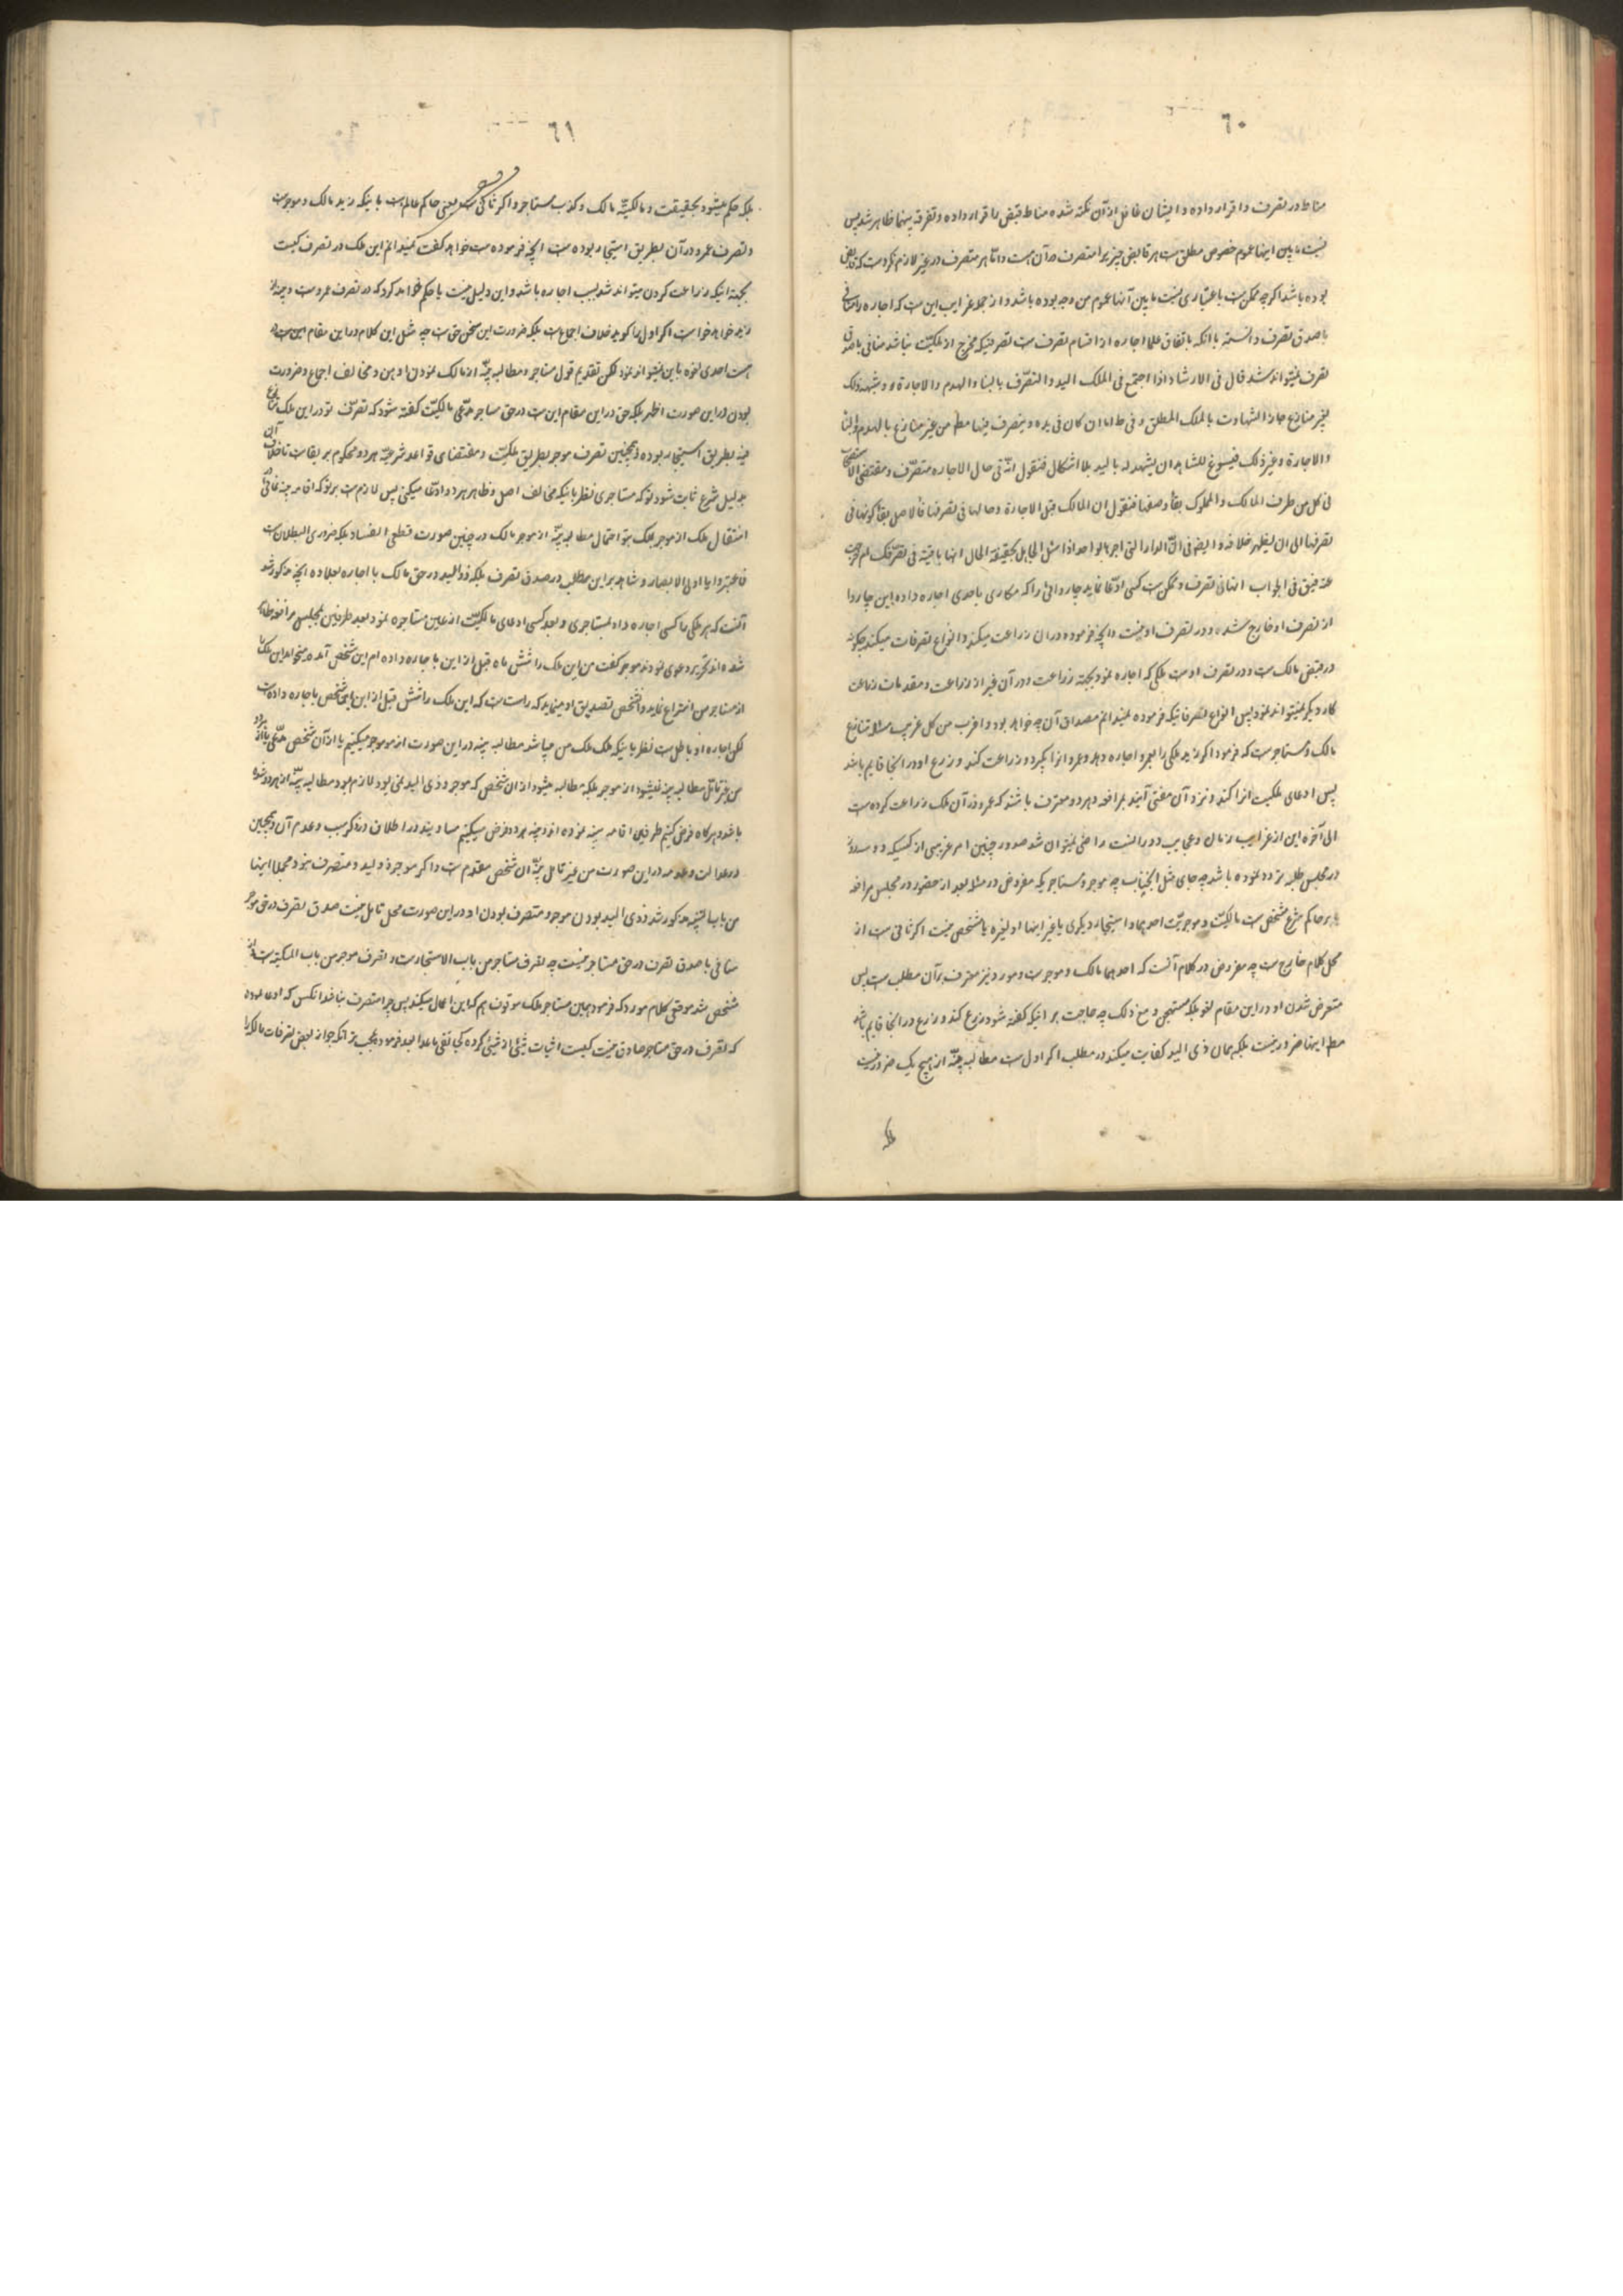 ٦٠
مناط در تصرف و اقرار داده و ایشان غافل از آن نکته شده مناط قبض را قرار داده و تفرقه بینهما ظاهر شد پس
نسبت ما بین اینها عموم خصوص مطلق است هر قابض چیزیرا متصرف در آن هست و اما هر متصرف در چیز لازم نکرده است که قابض
بوده باشد اگرچه ممکن است باعتباری نسبت ما بین آنها عموم من وجه بوده باشد و از جمله غرایب این است که اجاره را منافی
با صدق تصرف دانسته با آنکه باتفاق علما اجاره از اقسام تصرف است تصرفیکه مخرج از ملکیّت نباشد منافی با صدق
تصرف نمیتواند شد قال فی الارشاد اذا اجتمع فی الملک الید والتصّرف بالبناء والهدم والاجارة و شبهه ذلک
بغیر منازع جاز الشهادت بالملک المطلق و فی ط اما ان کان فی یده و یتصرف فیها مط من غیر منازع بالهدم والبناء
والاجارة و غیر ذلک فیسوغ للشاهد ان یشهد له بالید بلا اشکال فنقول انّه فی حال الاجاره متصّرف و مقتضی الاستصحاب
فی کل من طرف المالک والمملوک بقاء وصفهما فنقول ان المالک قبل الاجارة و حالها فی تصرفها فالاصل بقاء کونها فی
تصرفها الی ان یظهر خلافه و ایضه فی انّ الدار التی اجرها لواحد اذا سئل الجاهل بحقیقة الحال انها باقیة فی تصّرفک ام خرجت
عنه فیق فی الجواب انها فی تصرف و ممکن است کسی ادّعا نماید چاروائی را که مکاری باحدی اجاره داده این چاروا
از تصرف او خارج شده و در تصرف او نیست و آنچه فرموده در آن زراعت میکند و انواع تصرفات میکند چگونه
در قبض مالک است و در تصرف اوست ملکی که اجاره نمود بجهة زراعت و در آن غیر از زراعت و مقدمات زراعت
کار دیگر نمیتواند نمود پس انواع تصرفاتیکه فرموده نمیدانم مصداق آن چه خواهد بود و اغرب من کل غریب مسئلا تنازع
مالک و مستاجر است که فرمود اگر زید ملکی را بعمرو اجاره دهد و عمرو انرا بگیرد و زراعت کند و زرع او در انجا قایم باشد
پس ادعای ملکیت انرا کند و نزد آن مفتی آیند بمرافعه و هر دو معترف باشند که عمرو در آن ملک زراعت کرده است
الی آخره این از غرایب زمان و عجایب دورانست راضی نمیتوان شد صدور چنین امر غریبی از کسیکه دو سه روز
در مجلس طلبه تردد نموده باشد چه جای مثل انجناب چه موجر و مستاجریکه مفروض در مسئلا بعد از حضور در مجلس مرافعه
یا بر حاکم شرع مشخص است مالکیّت و موجریّت احدهما و استیجار دیگری یا غیر اینها او لغیره یا مشخص نیست اگر ثانی است از
محل کلام خارج است چه مفروض در کلام آنست که احدهما مالک و موجر است و مورد نیز معترف بر آن مطلب است پس
متعرض شدن او در این مقام لغو بلکه مستهجن و مع ذلک چه حاجت بر اینکه گفته شود زرع کند و زرع در انجا قایم باشد
مط اینها ضرور نیست بلکه همان ذی الید کفایت میکند در مطلب اگر اول است مطالبه بیّنه از هیچ یک ضرور نیست
بلکه
٦١
بلکه حکم میشود بحقیقت و مالکیّة مالک و کذب مستاجر و اگر ثانی است یعنی حاکم عالم است باینکه زید مالک و موجر است
و تصرف عمرو در آن بطریق استیجار بوده است آنچه فرموده است خواهد گفت نمیدانم این ملک در تصرف کیست
بجهة اینکه زراعت کردن میتواند شد بسبب اجاره باشد و این دلیل نیست یا حکم خواهد کرد که در تصرف عمرو است و بیّنه از
زید خواهد خواست اگر اول را گوید خلاف اجماع است بلکه ضرورت این سخن حق است چه مثل این کلام در این مقام این است
هست احدی تفوه باین نمیتواند نمود لکن تقدیم قول مستاجر و مطالبه بیّنه از مالک نمودن اوهن و مخالف اجماع و ضرورت
بودن در این صورت اظهر بلکه حق در این مقام این است در حق مستاجر مدّعی مالکیّت گفته شود که تصرّف تو در این ملک متنازع
فیه بطریق استیجار بوده و همچنین تصرف موجر بطریق ملکیّت و مقتضای قواعد شرعیّه هر دو محکوم بر بقاست تا خلاف آن
بدلیل شرع ثابت شود تو که مستاجری نظر باینکه مخالف اصل و ظاهر هر دو ادّعا میکنی پس لازم است بر تو که اقامه بینه نمائی
انتقال ملک از موجر بملک بتو احتمال مطالبه بیّنه از موجر مالک در چنین صورت قطعی الفساد بلکه ضروری البطلان است
فاعتبروا یا اولی الابصار و شاهد بر این مطلب در صدق تصرف بلکه ذو الید در حق مالک با اجاره بعلاوه آنچه مذکور شد
آنست که هر ملکی را کسی اجاره داد بمستاجری و بعد کسی ادعای مالکیّت از عین مستاجره نمود بعد طرفین بمجلس مرافعه حاضر
شده اند تحریر دعوی نمودند موجر گفت من این ملک را شش ماه قبل از این باجاره داده ام این شخص آمده میخواهد این ملک را
از مستاجر من انتزاع نماید و آنشخص تصدیق او مینماید که راست است که این ملک را شش قبل از این باینشخص باجاره داده است
لکن اجاره او باطل است نظر باینکه ملک ملک من میباشد مطالبه بینه در این صورت از موجر میکنیم یا از آن شخص مدّعی یا از هر دو
من غیر تامّل مطالبه بینه نمیشود از موجر بلکه مطالبه میشود از ان شخص که موجر و ذی الید نمی بود لازم بود مطالبه بیّنه از هر دو شود
باشد و هرگاه فرض کنیم طرفین اقامه بینه نموده اند و بیّنه هر دو فرض میکنیم مساویند در اطلاق و ذکر سبب و عدم آن و همچنین
در عدالت و عدد در این صورت من غیر تامل بیّنه ان شخص مقدم است و اگر موجر ذو الید و متصرف نبود و مجملا اینها
من باب التنبیه مذکور شد و ذی الید بودن موجر و متصرف بودن او در این صورت محل تامل نیست صدق تصرف در حق موجر
منافی با صدق تصرف در حق مستاجر نیست چه تصرف مستاجر من باب الاستیجار است و تصرف موجر من باب الملکیة است
مشخص شد موقتی کلام مورد که فرمود همین مستاجر ملک موقوف هم که این اعمال میکند پس چرا متصرف نباشد انکس که ادعا نموده
که تصرف در حق مستاجر صادق نیست کیست اثبات شیئی از شیئی کرده کجا نفی ما عدا بعد فرموده عجب تر آنکه جواز بعض تصرفات مالک را